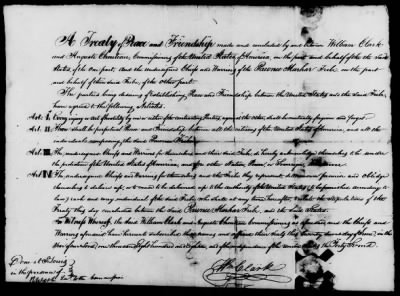 A Treaty of Peace and Friendship made and concluded by and between William Clark
and Auguste Chouteau, Commissioners of the United States of America, in the part and behalf of the said
States, of the one part; and the undersigned Chiefs and Warriors of the Pawnee Marhar Tribe, on the part
and behalf of their said Tribe, of the other part.
The parties being desirous of establishing Peace and Friendship between the United States and the said Tribe,
have agreed to the following Articles.
Art. I. Every injury or act of hostility by one or either of the contracting Parties against the other, shall be mutually forgiven and forgot.
Art. II. There shall be perpetual Peace and Friendship between all the citizens of the United States of America, and all the
individuals composing the said Pawnee Tribe.
Art. III. The undersigned Chiefs and Warriors for themselves and their said Tribe, do hereby acknowledge themselves to be under
the protection of the United States of America, and of no other Nation, Power, or Sovereign, whatsoever.
Art. IV. The undersigned Chiefs and Warriors for themselves and the Tribe they represent do moreover promise and oblige
themselves to deliver up, or to cause to be delivered up to the authority of the United States (to be punished according to
law) each and every individual of the said Tribe who shall at any time hereafter violate the stipulations of the
Treaty this day concluded between the said Pawnee Marhar Tribe, and the said States.
In Witness Whereof, the said William Clark and Auguste Chouteau, Commissioners as aforesaid, and the Chiefs and
Warriors aforesaid have hereunto subscribed their names and affixed their Seals, this twenty second day of June, in the
Year of our Lord, one thousand Eight hundred and eighteen, and of the Independence of the United States the forty second.
Done at St Louis
in the presence of
Wm Clark